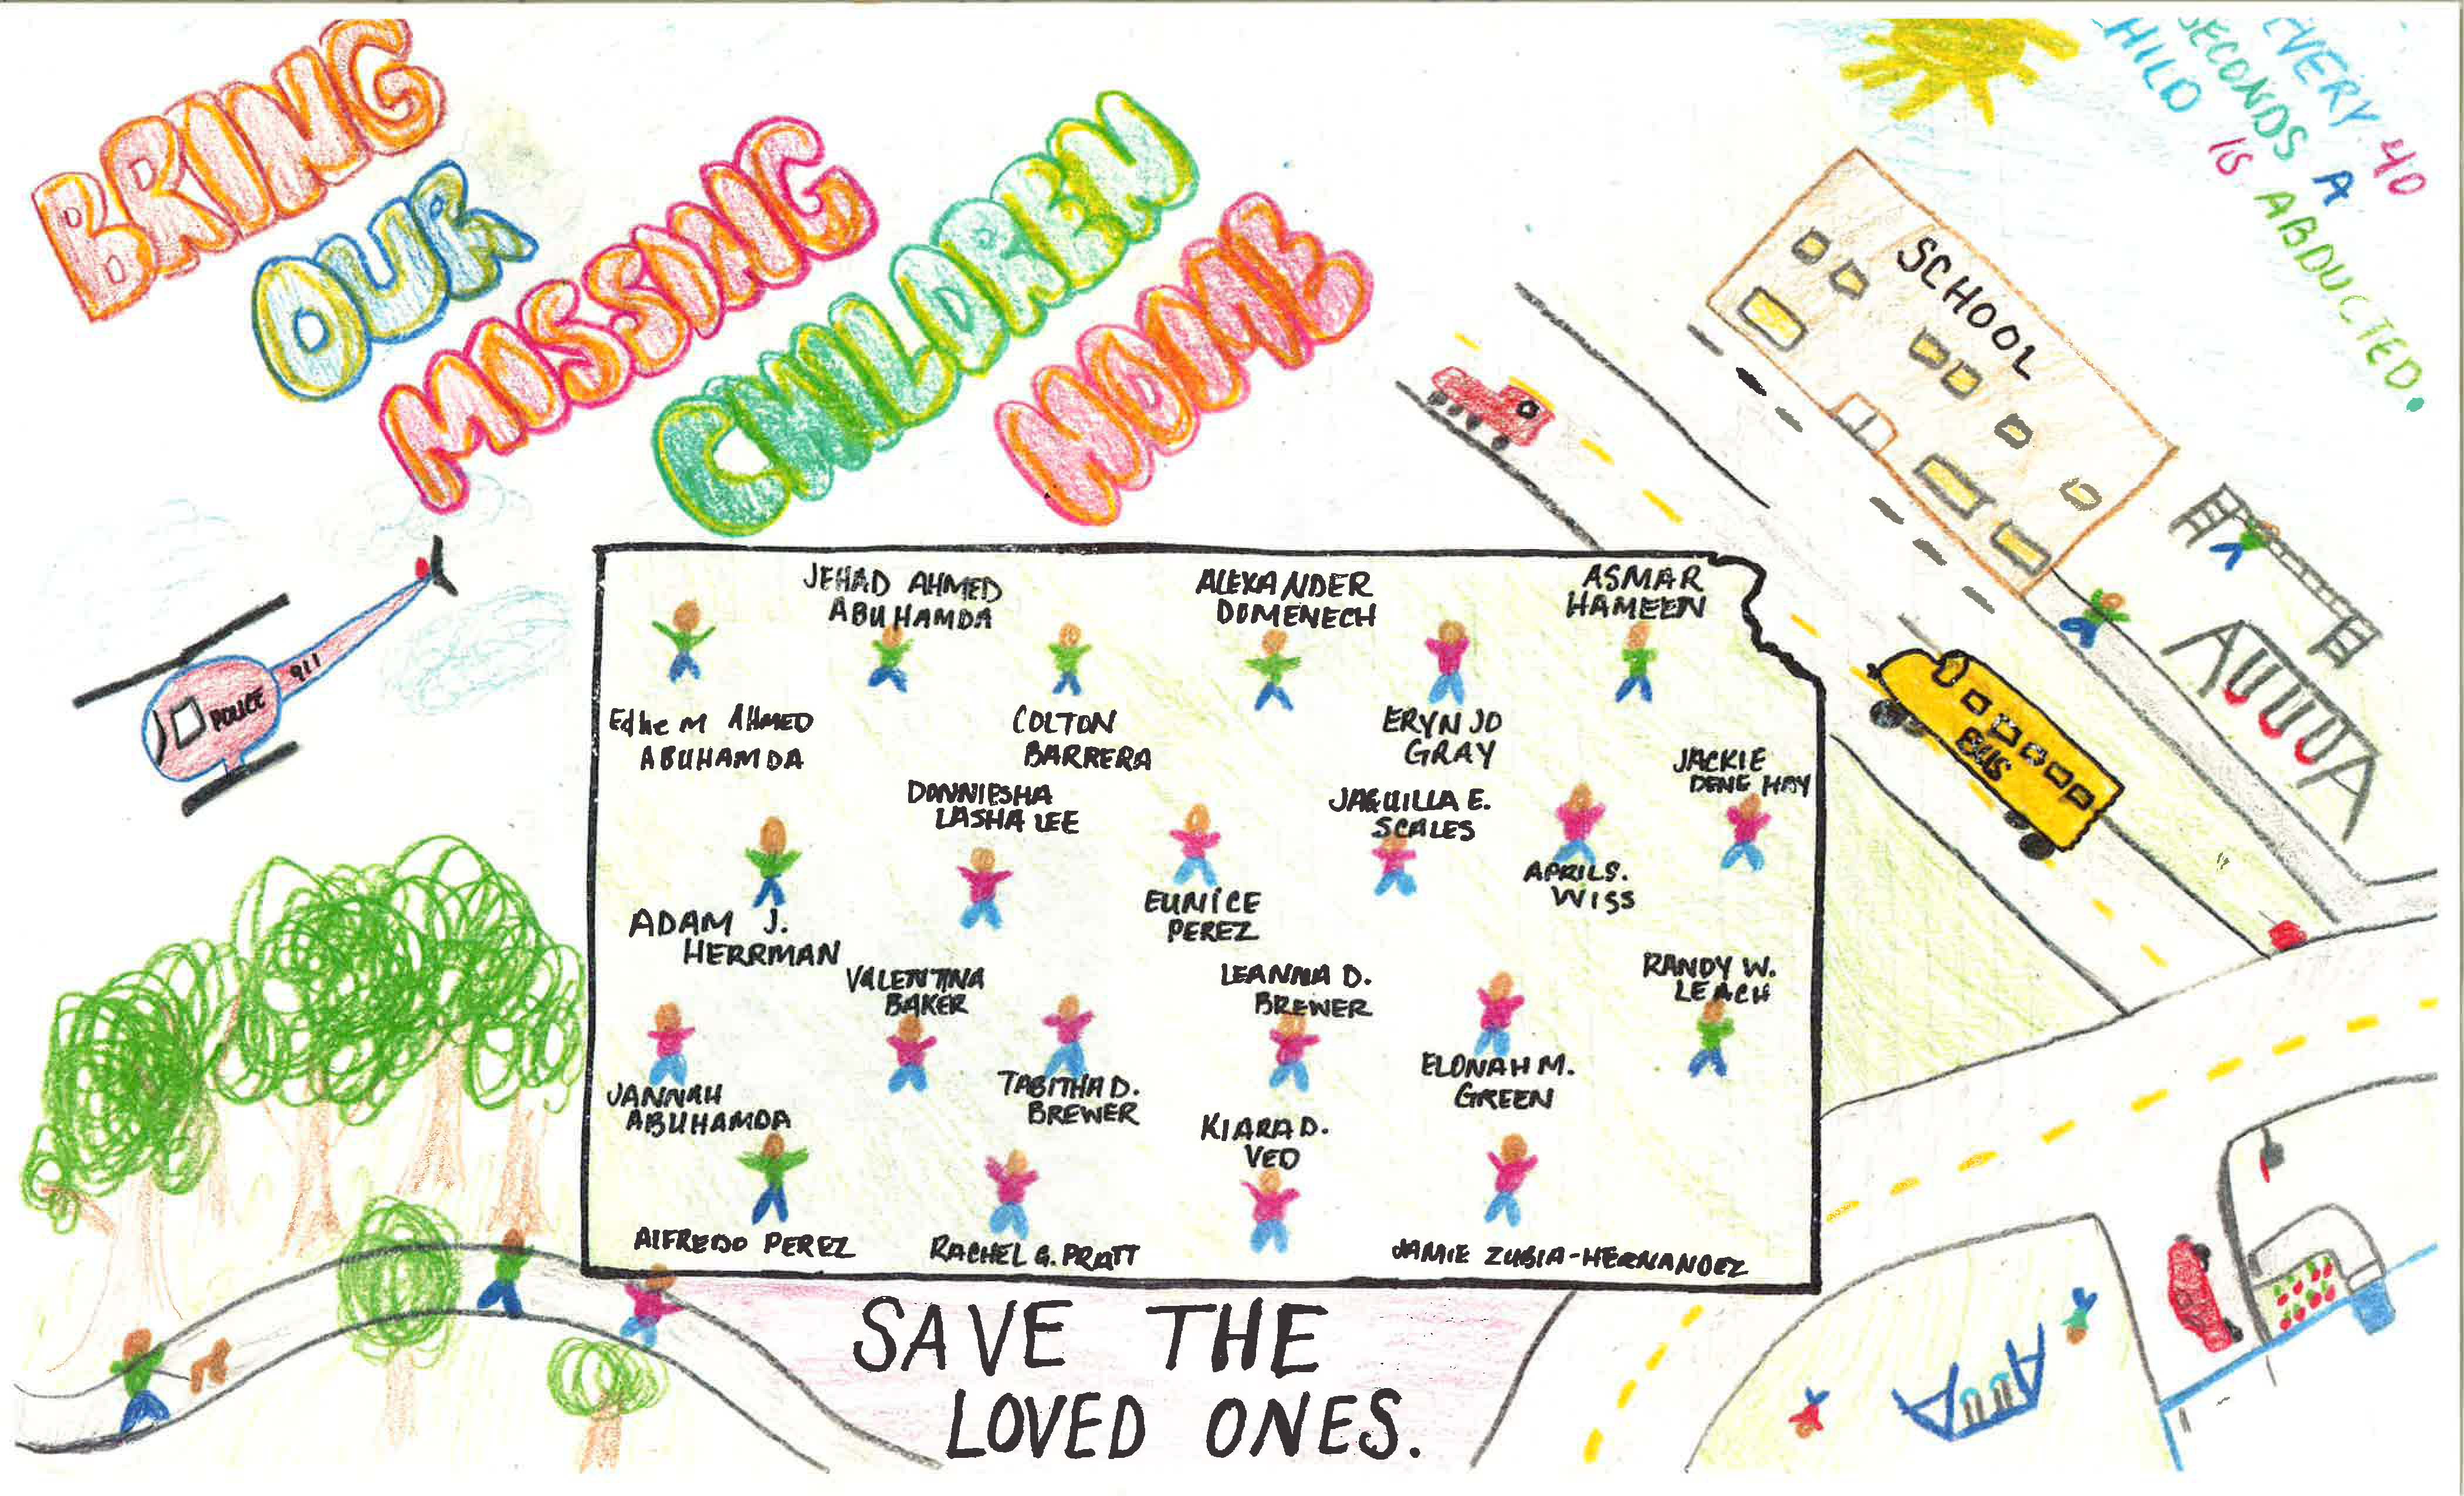 BRING
OUR
MISSING
CHILDREN
HOME
EVERY 40
SECONDS A
CHILD IS ABDUCTED.
SCHOOL
POLICE
911
BUS
JEHAD AHMED
ABUHAMDA
ALEXANDER
DOMENECH
ASMAR
HAMEEN
Edhem AHMED
ABUHAMDA
COLTON
BARRERA
ERYN JO
GRAY
JACKIE
DENE HAY
DONNIESHA
LASHA LEE
JAQUILLA E.
SCALES
EUNICE
PEREZ
APRIL S.
WISS
ADAM J.
HERRMAN
VALENTINA
BAKER
LEANNA D.
BREWER
RANDY W.
LEACH
JANNAH
ABUHAMDA
TABITHA D.
BREWER
ELONAH M.
GREEN
KIARA D.
VED
ALFREDO PEREZ
RACHEL G. PRATT
JAMIE ZUBIA-HERNANDEZ
SAVE THE
LOVED ONES.